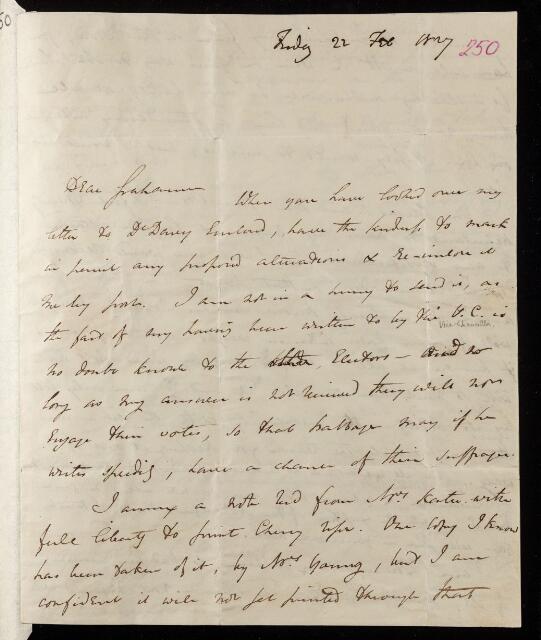 50
Friday 22 Feb 1827 250
Dear Grahame When you have looked over my
letter to Dr Davey Enclosed, have the kindness to mark
in pencil any proposed alterations & Re-inclose it
me by post. I am not in a hurry to send it, as
the fact of my having been written to by the V.C. is
Vice-Chancellor
no doubt known to the Electors – and so
long as my answer is not received they will not
engage their votes, so that Babbage may if he
writes speedily, have a chance of their suffrages.
I annex a note recd from Mrs Kater with
full liberty to print Cherry ripe. One copy I know
has been taken of it, by Mrs Young, but I am
confident it will not get printed through that